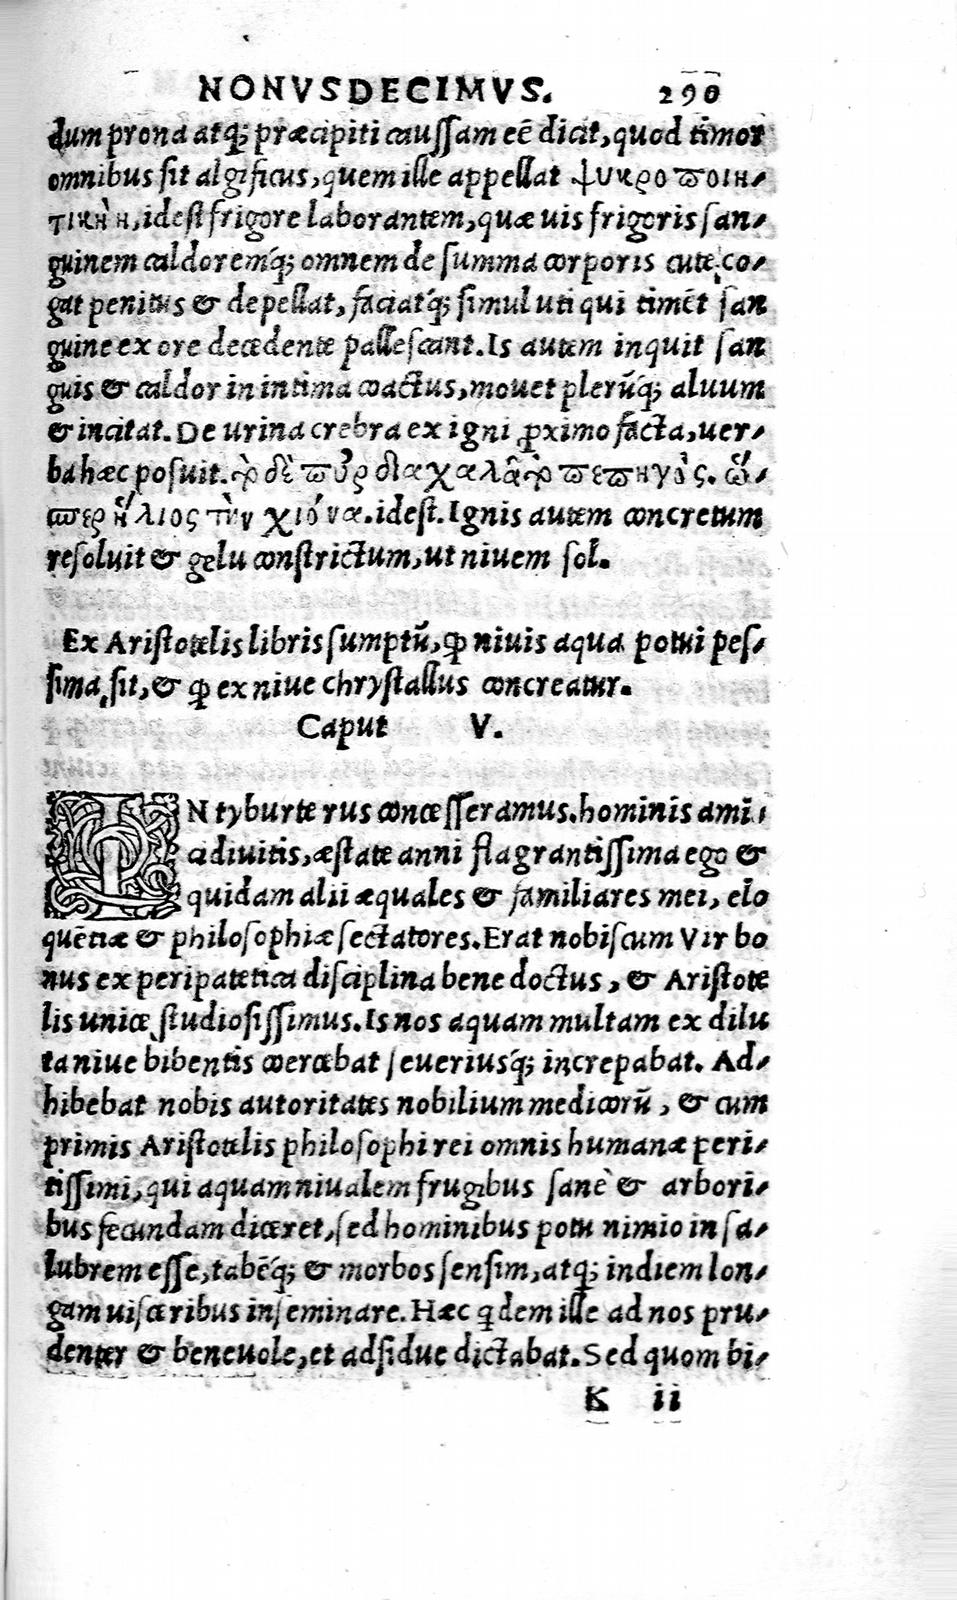 NONVSDECIMVS. 290
dum prona atq; præcipiti caussam eē dicit, quod timor
omnibus sit algificus, quem ille appellat ψυκροποιη-
τικὴη, idest frigore laborantem, quæ uis frigoris san-
guinem caldoremq́; omnem de summa corporis cute co-
gat penitus & depellat, faciatq́; simul uti qui timēt san
guine ex ore decedente pallescant. Is autem inquit san
guis & caldor in intima coactus, mouet plerūq́; aluum
& incitat. De urina crebra ex igni ꝓximo facta, uer-
ba hæc posuit. τὸ δὲ πῦρ διαχαλᾶ τὸ πεπηγὸς. ὥ-
περ ἥλιος τὴν χιόνα. idest. Ignis autem concretum
resoluit & gelu constrictum, ut niuem sol.
Ex Aristotelis libris sumptū, ꝙ niuis aqua potui pes-
sima sit, & ꝙ ex niue chrystallus concreatur.
Caput V.
IN tyburte rus concesseramus. hominis ami-
ci diuitis, æstate anni flagrantissima ego &
quidam alii æquales & familiares mei, elo
quētiæ & philosophiæ sectatores. Erat nobiscum Vir bo
nus ex peripatetica disciplina bene doctus, & Aristote
lis unice studiosissimus. Is nos aquam multam ex dilu
ta niue bibentis coercebat seueriusq́; increpabat. Ad-
hibebat nobis autoritates nobilium medicorū, & cum
primis Aristotelis philosophi rei omnis humanæ peri-
tissimi, qui aquam niualem frugibus sanè & arbori-
bus fecundam diceret, sed hominibus potu nimio insa-
lubrem esse, tabēq́; & morbos sensim, atq; indiem lon-
gam uisceribus inseminare. Hæc qdem ille ad nos pru-
denter & beneuole, et adsidue dictabat. Sed quom bi-
K ii